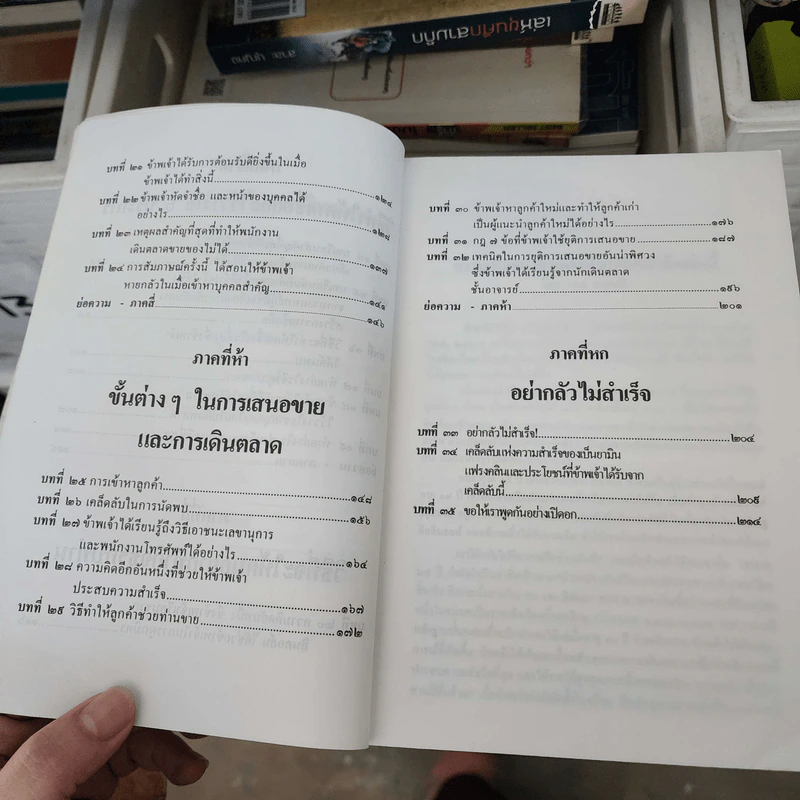 เล่ห์ขุนศึกสามก๊ก
บทที่ ๒๑ ข้าพเจ้าได้รับการต้อนรับดียิ่งขึ้นในเมื่อ
ข้าพเจ้าได้ทำสิ่งนี้..........๑๒๔
บทที่ ๒๒ ข้าพเจ้าหัดจำชื่อ และหน้าของบุคคลได้
อย่างไร..........๑๒๘
บทที่ ๒๓ เหตุผลสำคัญที่สุดที่ทำให้พนักงาน
เดินตลาดขายของไม่ได้..........๑๓๗
บทที่ ๒๔ การสัมภาษณ์ครั้งนี้ ได้สอนให้ข้าพเจ้า
หายกลัวในเมื่อเข้าหาบุคคลสำคัญ..........๑๔๑
ย่อความ - ภาคสี่..........๑๔๖
ภาคที่ห้า
ขั้นต่าง ๆ ในการเสนอขาย
และการเดินตลาด
บทที่ ๒๕ การเข้าหาลูกค้า..........๑๔๘
บทที่ ๒๖ เคล็ดลับในการนัดพบ..........๑๕๖
บทที่ ๒๗ ข้าพเจ้าได้เรียนรู้ถึงวิธีเอาชนะเลขานุการ
และพนักงานโทรศัพท์ได้อย่างไร..........๑๖๔
บทที่ ๒๘ ความคิดอีกอันหนึ่งที่ช่วยให้ข้าพเจ้า
ประสบความสำเร็จ..........๑๖๗
บทที่ ๒๙ วิธีทำให้ลูกค้าช่วยท่านขาย..........๑๗๒
บทที่ ๓๐ ข้าพเจ้าหาลูกค้าใหม่และทำให้ลูกค้าเก่า
เป็นผู้แนะนำลูกค้าใหม่ได้อย่างไร..........๑๗๖
บทที่ ๓๑ กฎ ๗ ข้อที่ข้าพเจ้าใช้ยุติการเสนอขาย..........๑๘๗
บทที่ ๓๒ เทคนิคในการยุติการเสนอขายอันน่าพิศวง
ซึ่งข้าพเจ้าได้เรียนรู้จากนักเดินตลาด
ชั้นอาจารย์..........๑๙๖
ย่อความ - ภาคห้า..........๒๐๑
ภาคที่หก
อย่ากลัวไม่สำเร็จ
บทที่ ๓๓ อย่ากลัวไม่สำเร็จ!..........๒๐๔
บทที่ ๓๔ เคล็ดลับแห่งความสำเร็จของเบ็นยามิน
แฟรงคลินและประโยชน์ที่ข้าพเจ้าได้รับจาก
เคล็ดลับนี้..........๒๐๙
บทที่ ๓๕ ขอให้เราพูดกันอย่างเปิดอก..........๒๑๔